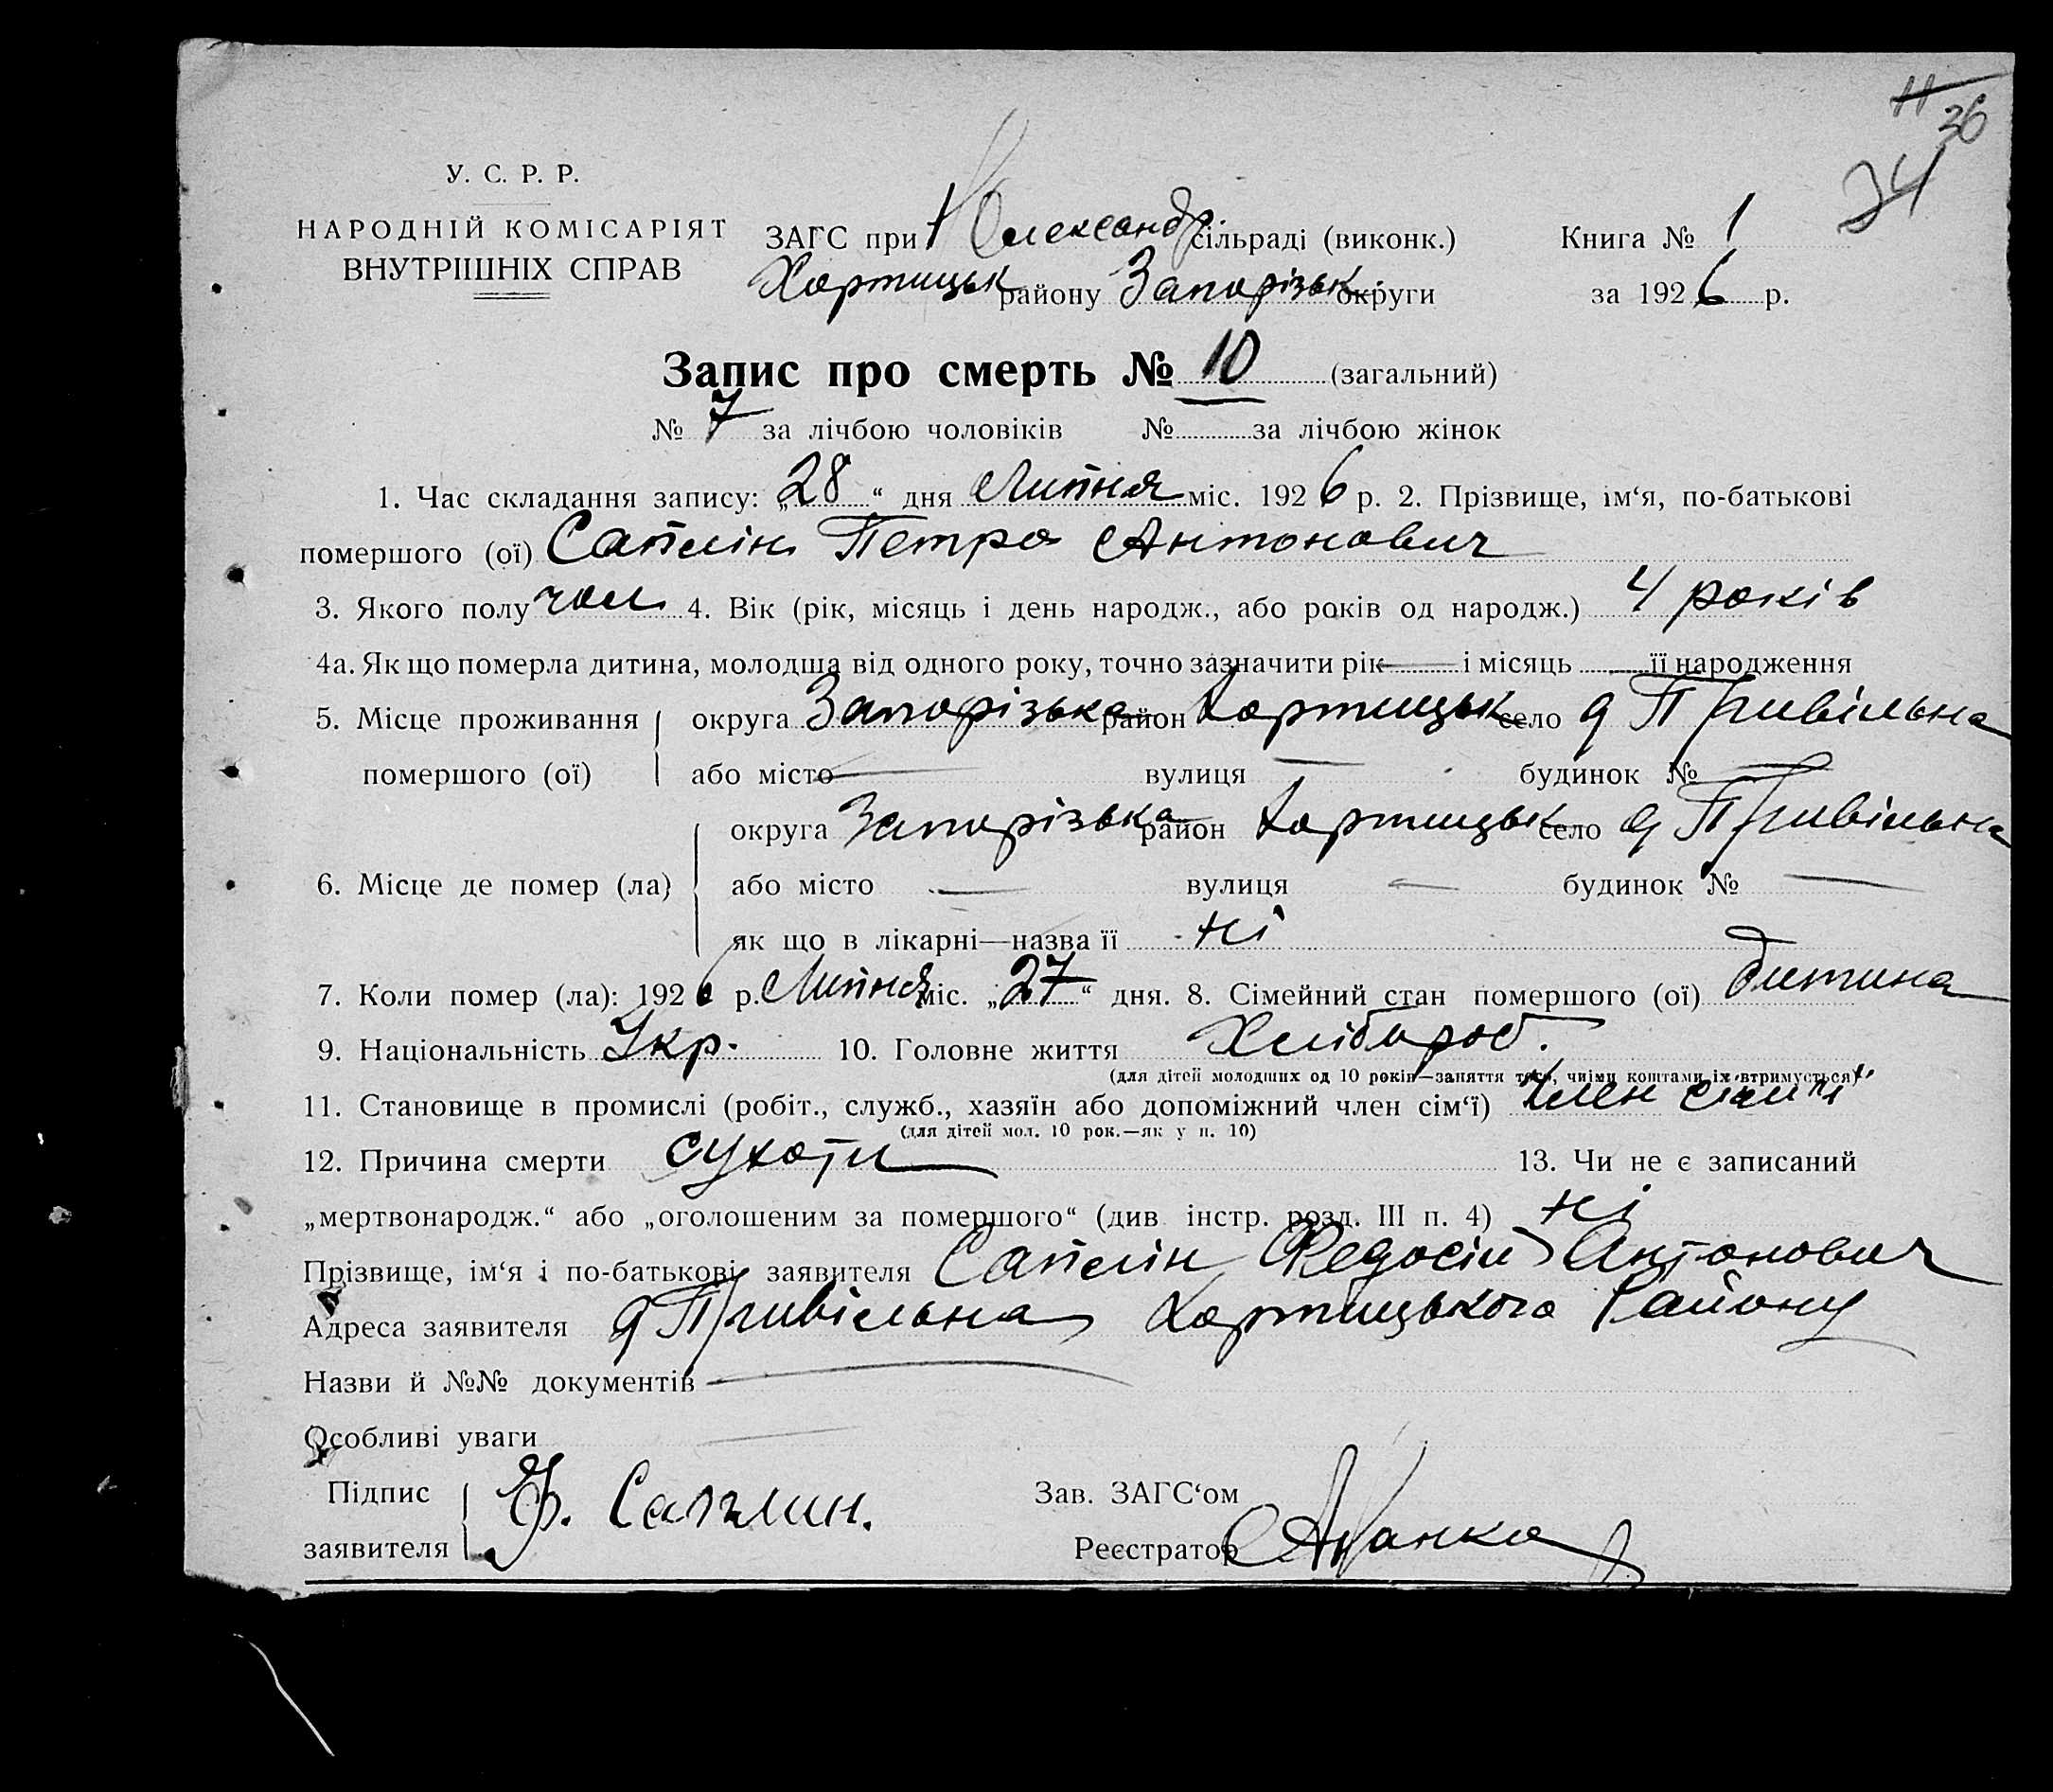 11
36
34
У. С. Р. Р.
НАРОДНІЙ КОМІСАРІЯТ
ВНУТРІШНІХ СПРАВ
ЗАГС при Олександр. сільраді (виконк.)
Книга № 1
Хортицьк району Запорізьк. округи
за 1926 р.
Запис про смерть № 10 (загальний)
№ 7 за лічбою чоловіків № за лічбою жінок
1. Час складання запису: „28“ дня Липня міс. 1926 р. 2. Прізвище, ім‘я, по-батькові
помершого (ої) Саплін Петро Антонович
3. Якого полу чол 4. Вік (рік, місяць і день народж., або років од народж.) 4 років
4а. Як що померла дитина, молодша від одного року, точно зазначити рік — і місяць її народження
5. Місце проживання округа Запорізька район Хортицьк село д Привільна
помершого (ої) або місто — вулиця — будинок № —
округа Запорізька район Хортицьк село д Привільна
6. Місце де помер (ла) або місто — вулиця — будинок № —
як що в лікарні—назва її ні
7. Коли помер (ла): 1926 р. Липня міс. „27“ дня. 8. Сімейний стан помершого (ої) дитина
9. Національність Укр. 10. Головне життя Хлібороб.
(для дітей молодших од 10 років—заняття того, чиїми коштами їх втримується)
11. Становище в промислі (робіт., служб., хазяїн або допоміжний член сім‘ї) Член сім'ї
(для дітей мол. 10 рок.—як у п. 10)
12. Причина смерти сухоти 13. Чи не є записаний
„мертвонародж.“ або „оголошеним за помершого“ (див. інстр. розд. III п. 4) ні
Прізвище, ім‘я і по-батькові заявителя Саплін Федосій Антонович
Адреса заявителя д Привільна Хортицького Району
Назви й №№ документів —
Особливі уваги —
Підпис
заявителя Ф. Саплин.
Зав. ЗАГС‘ом
Реєстратор